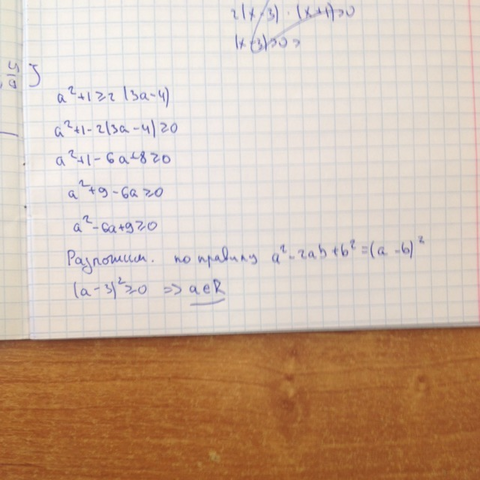 2(x-3) · (x+1)≥0
(x-3)≥0 =>
a²+1≥2(3a-4)
a²+1-2(3a-4)≥0
a²+1-6a+8≥0
a²+9-6a≥0
a²-6a+9≥0
Разложим. по правилу a²-2ab+b²=(a-b)²
(a-3)²≥0 => a∈R